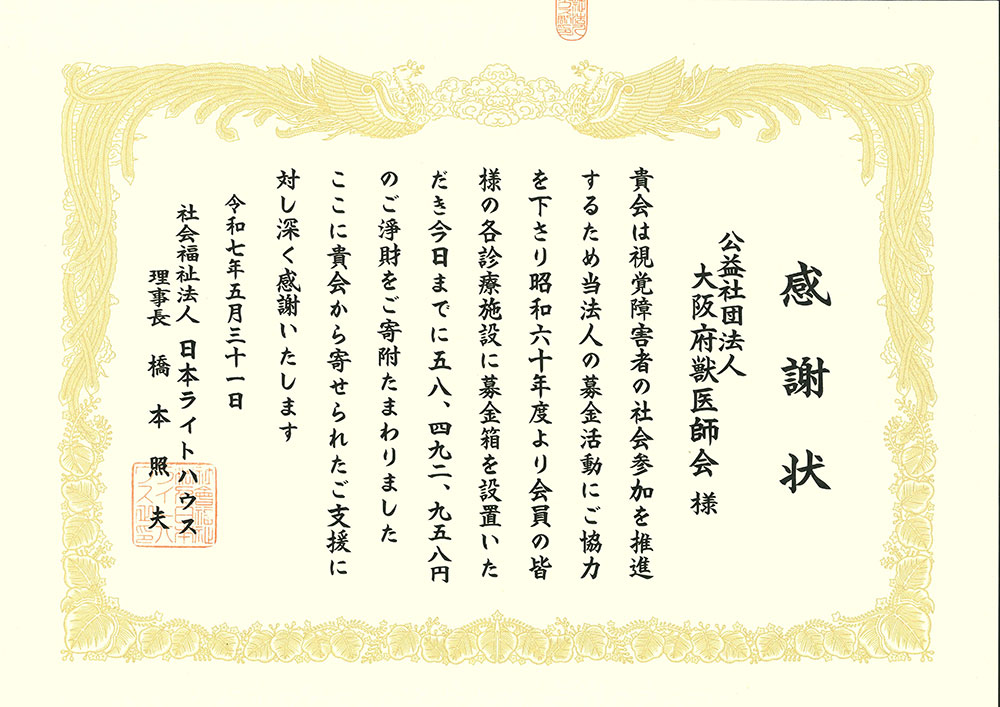 感謝状
公益社団法人
大阪府獣医師会 様
貴会は視覚障害者の社会参加を推進
するため当法人の募金活動にご協力
を下さり昭和六十年度より会員の皆
様の各診療施設に募金箱を設置いた
だき今日までに五八、四九二、九五八円
のご浄財をご寄附たまわりました
ここに貴会から寄せられたご支援に
対し深く感謝いたします
令和七年五月三十一日
社会福祉法人 日本ライトハウス
理事長 橋本照夫